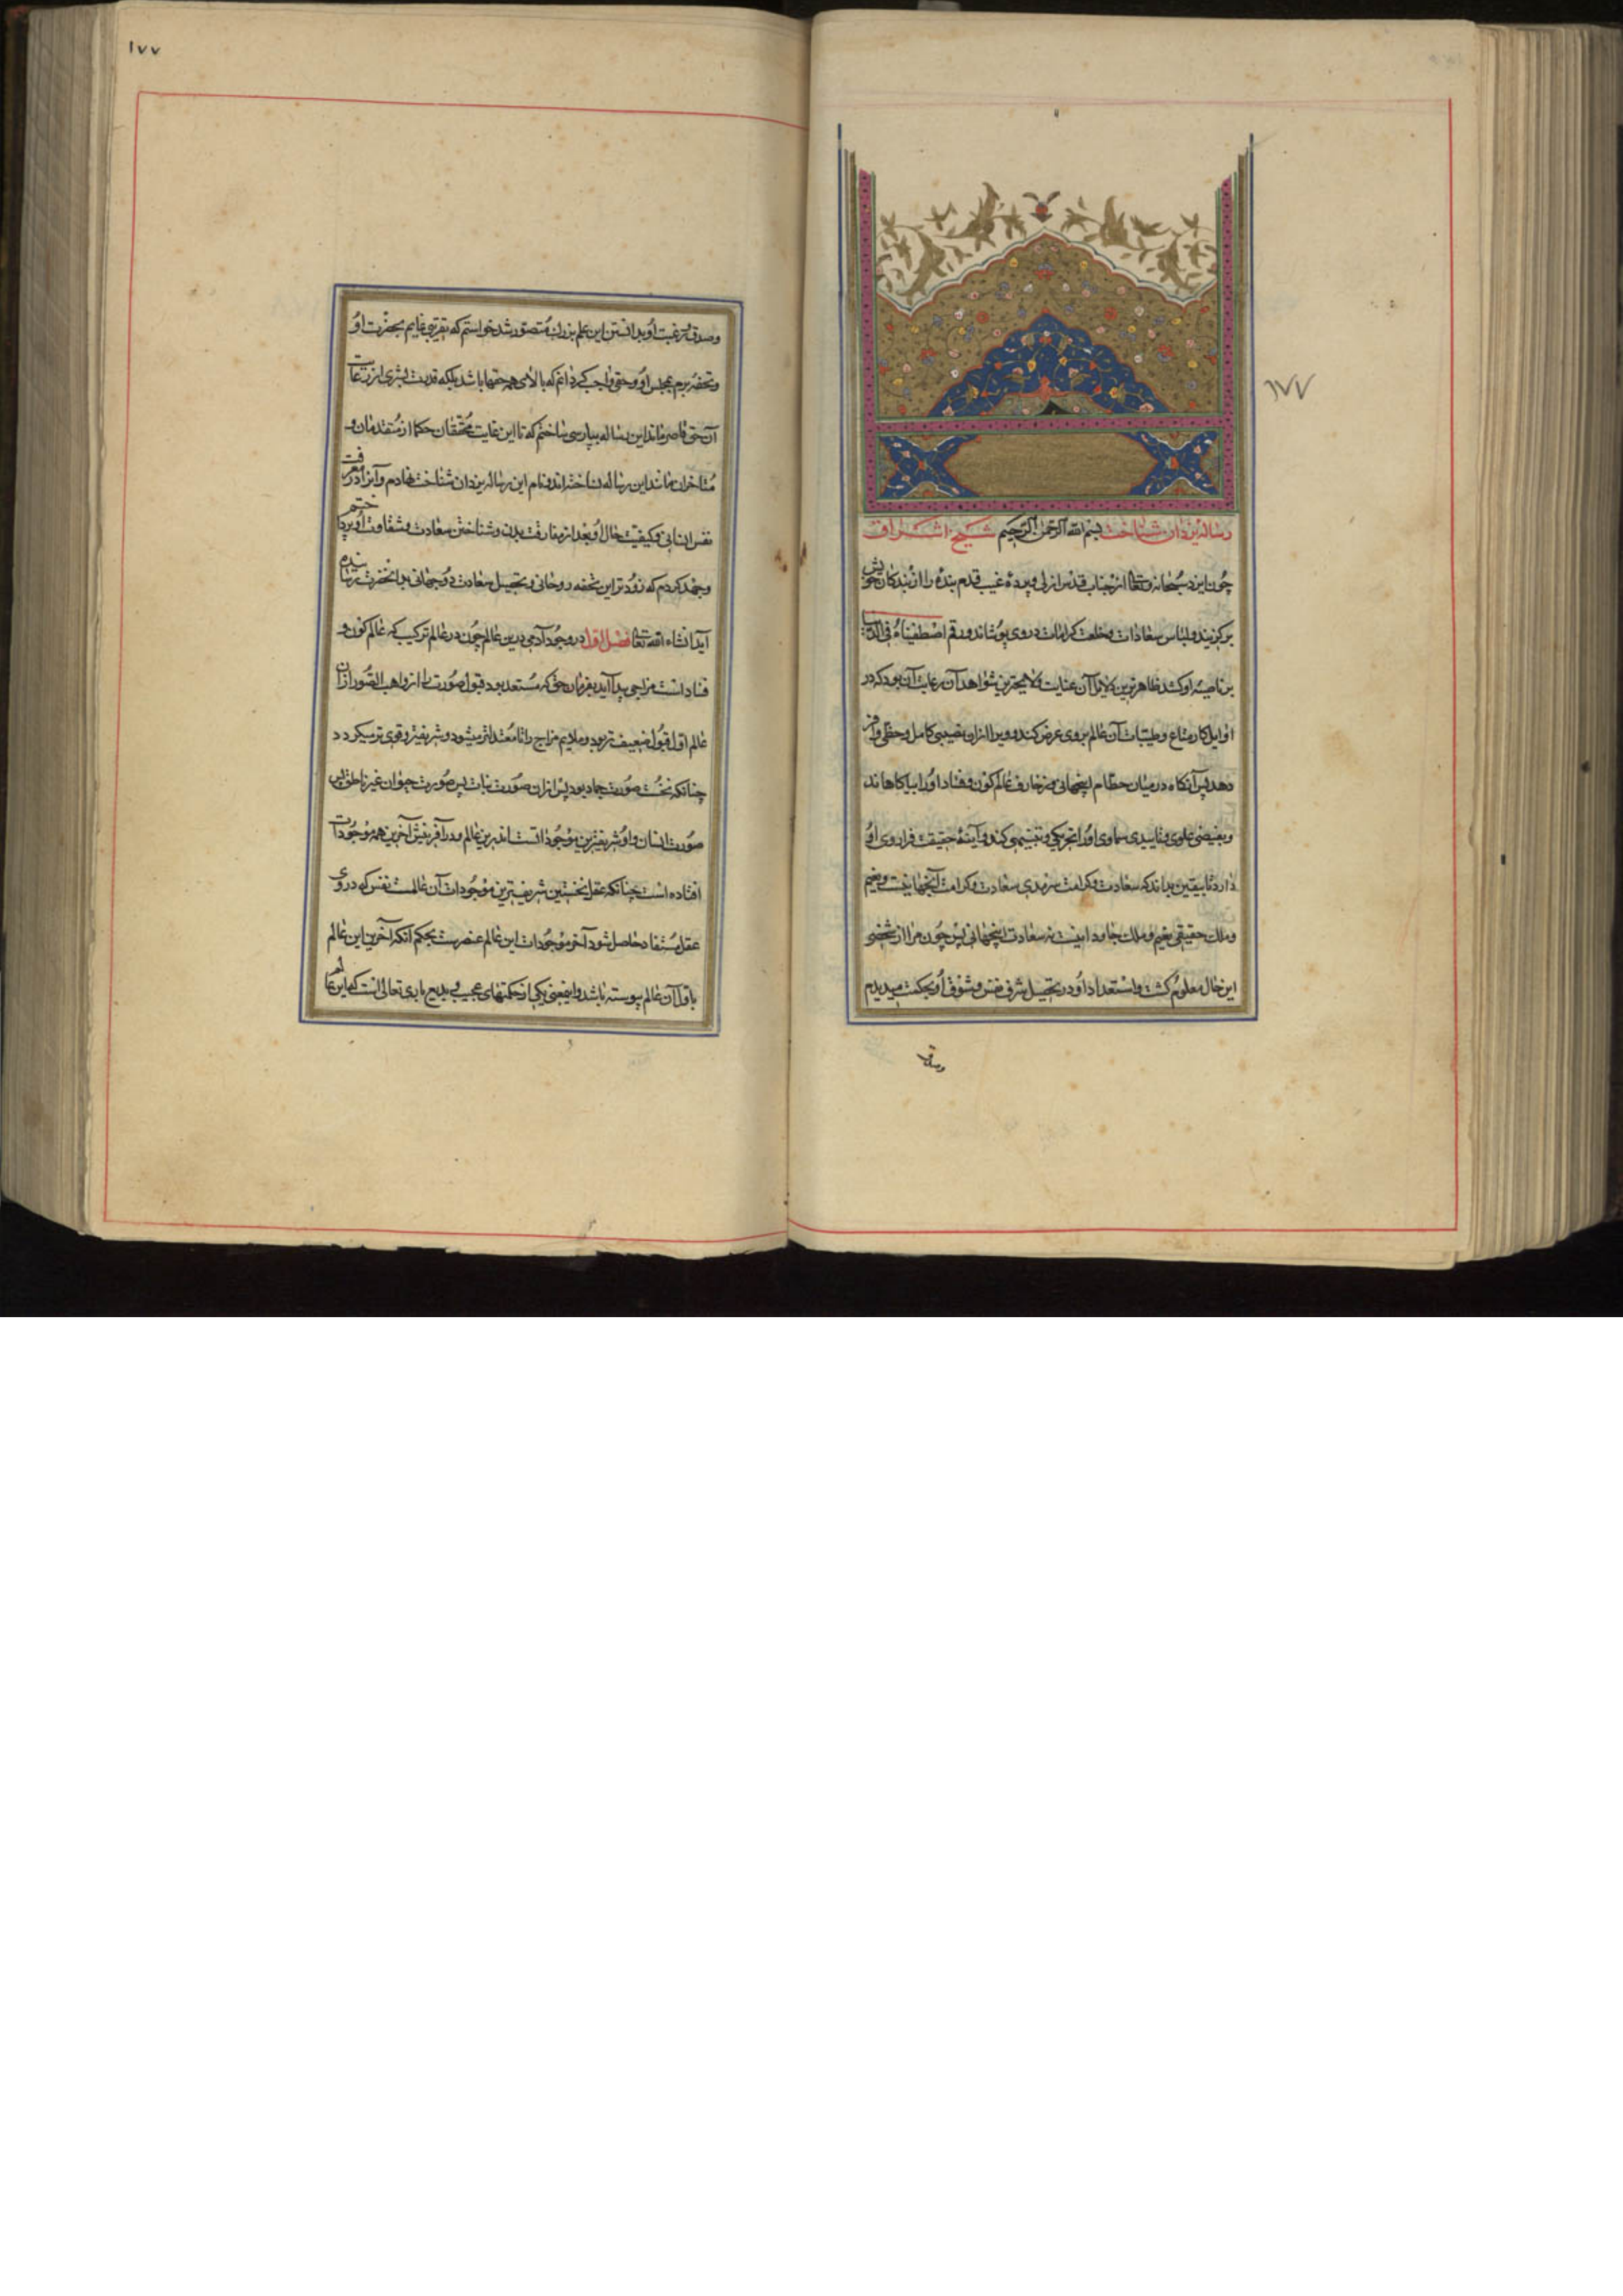 ۱۷۷
رساله یزدان شناخت بسم الله الرحمن الرحیم شیخ اشراق
چون ایزد سبحانه و تعالی از جناب قدس ازلی و پرده غیب قدم بنده را از بندکان خویش
برکزیند و لباس سعادات و خلعت کرامات در وی پوشاند و رقم اصطفیناه فی الدنیا
بر ناصیه او کشد ظاهرترین دلایل آن عنایت و لایحترین شواهد آن رعایت آن بود که در
اوایل کار متاع و طیبات آن عالم بر وی عرض کند و ویرا ازان نصیبی کامل و حظی وافر
دهد پس آنکاه درمیان حطام اینجهانی و زخارف عالم کون و فساد او را بیاکاهاند
و بفیضی علوی و تاییدی سماوی او را تحریکی و تنبیهی کند و آینهٔ حقیقت فرا روی او
دارد تا بیقین بداند که سعادت و کرامت سرمدی سعادت و کرامت آنجهانیست و نعیم
و ملک حقیقی نعیم و ملک جاودانیست نه سعادت اینجهانی پس چون مرا از شخصی
این حال معلوم کشت و استعداد او در تحصیل شرف نفس و شوق او بحکمت میدیدم
وصدق
۱۷۷
و صدق رغبت او بدانستن این علم بزرک متصور شد خواستم که تقربی نمایم بحضرت او
و تحفهٔ برم بمجلس او و حقی واجب کردانم که بالای همه حقها باشد بلکه قدرت بشری از رعایت
آن حق قاصر ماند این رساله بپارسی ساختم که تا این غایت محققان حکما از متقدمان و
متاخران مانند این رساله نساخته‌اند و نام این رساله یزدان شناخت نهادم و آنرا در معرفت
نفس انسانی و کیفیت حال او بعد از مفارقت بدن و شناختن سعادت و شقاوت او پرداختم
و جهد کردم که زودتر این تحفه روحانی و تحصیل سعادت دوجهانی بدانحضرت رسانیده
آید انشاء الله تعالی فصل اول در وجود آدمی درین عالم چون در عالم ترکیب که عالم کون و
فساد است مزاجی پدید آید بفرمان حق که مستعد بود قبول صورت را از واهب الصور ازان
عالم اول قبول ضعیف تر بود و ملایم مزاج را تا معتدلتر میشود و شریفتر و قوی تر میکردد
چنانکه نخست صورت جماد بود پس ازان صورت نبات پس صورت حیوان غیر ناطق پس
صورت انسان و او شریفترین موجوداتست اندرین عالم و در آفرینش آخرین همه موجودات
افتاده است چنانکه عقل نخستین شریفترین موجودات آن عالمست نفس که در وی
عقل مستفاد حاصل شود آخر موجودات این عالم عنصریست بحکم آنکه آخرین این عالم
باول آن عالم پیوسته باشد و اینمعنی یکی از حکمتهای عجیب و بدیع باری تعالی است که این عالم